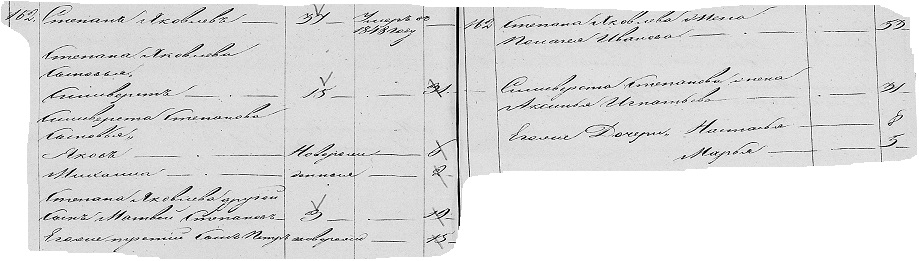 162. Степанъ Яковлевъ — 37 — Умеръ въ
1848 году
Степана Яковлева
Сыновья,
Сильверстъ — 15 — 31
Сильверста Степанова
Сыновья,
Яковъ — новорож — 6
Михаила — денныя — 2
Степана Яковлева другой
Сынъ Матвей Степановъ — 3 — 19
Его же третий Сынъ Петръ новорож — 15
162 Степана Яковлева жена
Пелагея Иванова — 53
Сильверста Степанова жена
Аксинья Игнатьева — 31
Его же Дочери, Настасья — 8
Марья — 5